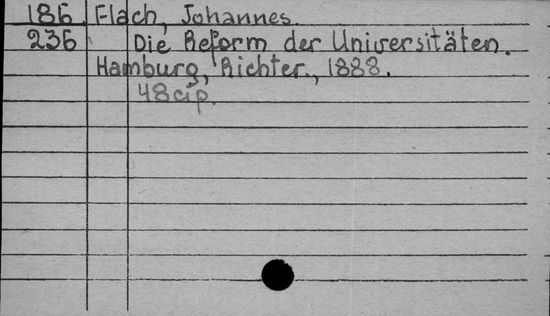 186. Flach, Johannes.
236 Die Reform der Universitäten.
Hamburg, Richter., 1888.
48 cip.